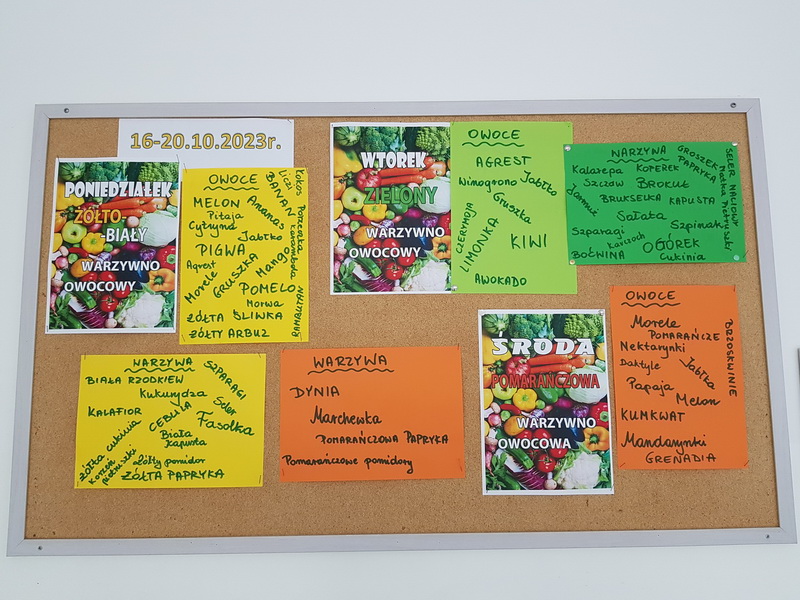 16-20.10.2023r.
PONIEDZIAŁEK
ŻÓŁTO-
-BIAŁY
WARZYWNO
OWOCOWY
OWOCE
MELON
Pitaja
Cytryna
Ananas
BANAN
Liczi
Kokos
Porzeczka
Karambola
Jabłko
PIGWA
Mango
Agrest
GRUSZKA
Morele
POMELO
Morwa
RAMBUTAN
ŻÓŁTA ŚLIWKA
ŻÓŁTY ARBUZ
WARZYWA
BIAŁA RZODKIEW
SZPARAGI
Kukurydza
KALAFIOR
CEBULA
Seler
Fasolka
Biała
kapusta
żółta cukinia
Korzeń
pietruszki
żółty pomidor
ŻÓŁTA PAPRYKA
WTOREK
ZIELONY
WARZYWNO
OWOCOWY
OWOCE
AGREST
Winogrono
Jabłko
Gruszka
CZERYMOJA
LIMONKA
KIWI
AWOKADO
WARZYWA
GROSZEK
PAPRYKA
SELER NACIOWY
Natka Pietruszki
Kalarepa
KOPEREK
Szczaw
BROKUŁ
Jarmuż
BRUKSELKA
KAPUSTA
Sałata
Szparagi
Szpinak
Karczoch
OGÓREK
BOĆWINA
Cukinia
WARZYWA
DYNIA
Marchewka
POMARAŃCZOWA PAPRYKA
Pomarańczowe pomidory
ŚRODA
POMARAŃCZOWA
WARZYWNO
OWOCOWA
OWOCE
Morele
POMARAŃCZE
Nektarynki
Daktyle
Jabłka
BRZOSKWINIE
Papaja
Melon
KUMKWAT
Mandarynki
GRENADIA